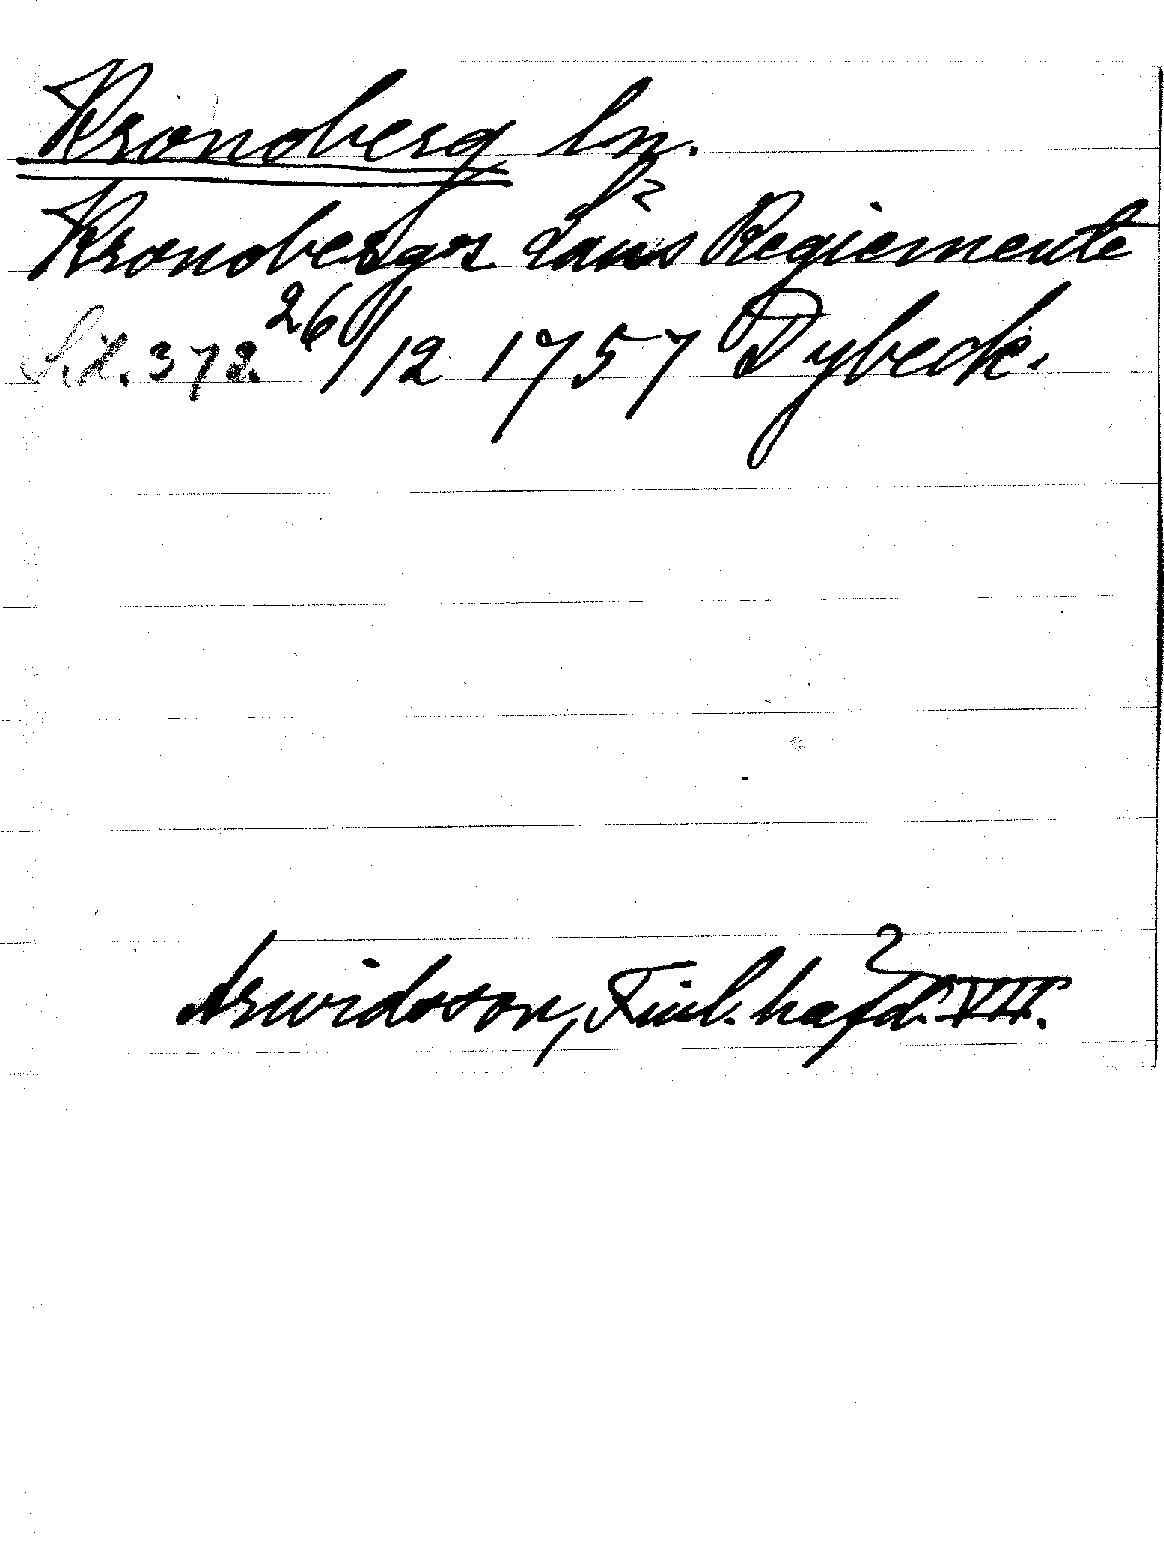 Kronoberg ln.
Kronobergs Läns Regiemente
S.d. 372. 26/12 1757 Dybeck.
Arwidsson, Finl. hafd. VII.